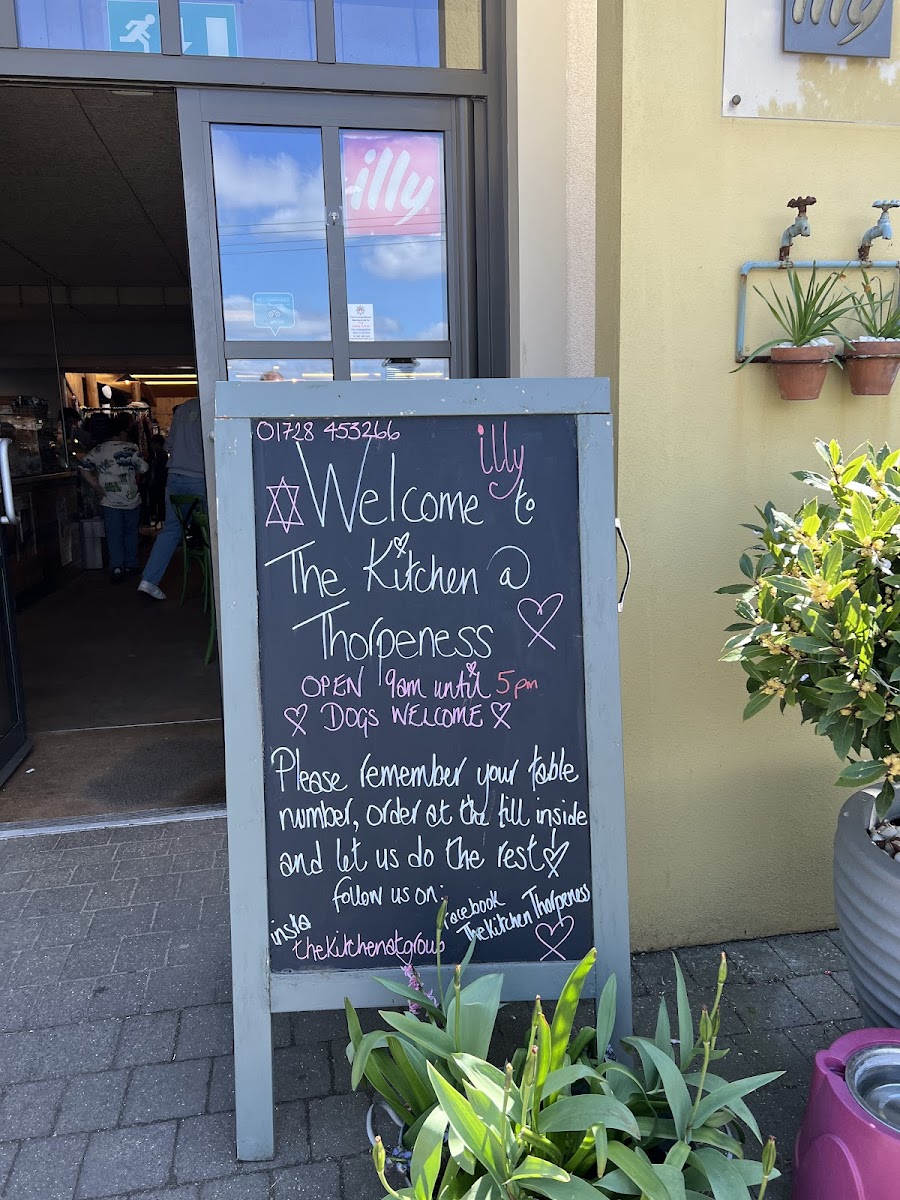 illy
illy
01728 453266
illy
Welcome to
The Kitchen @
Thorpeness
OPEN 9am until 5pm
DOGS WELCOME
Please remember your table
number, order at the till inside
and let us do the rest!
follow us on:
insta
thekitchenatgroup
facebook
TheKitchen Thorpeness